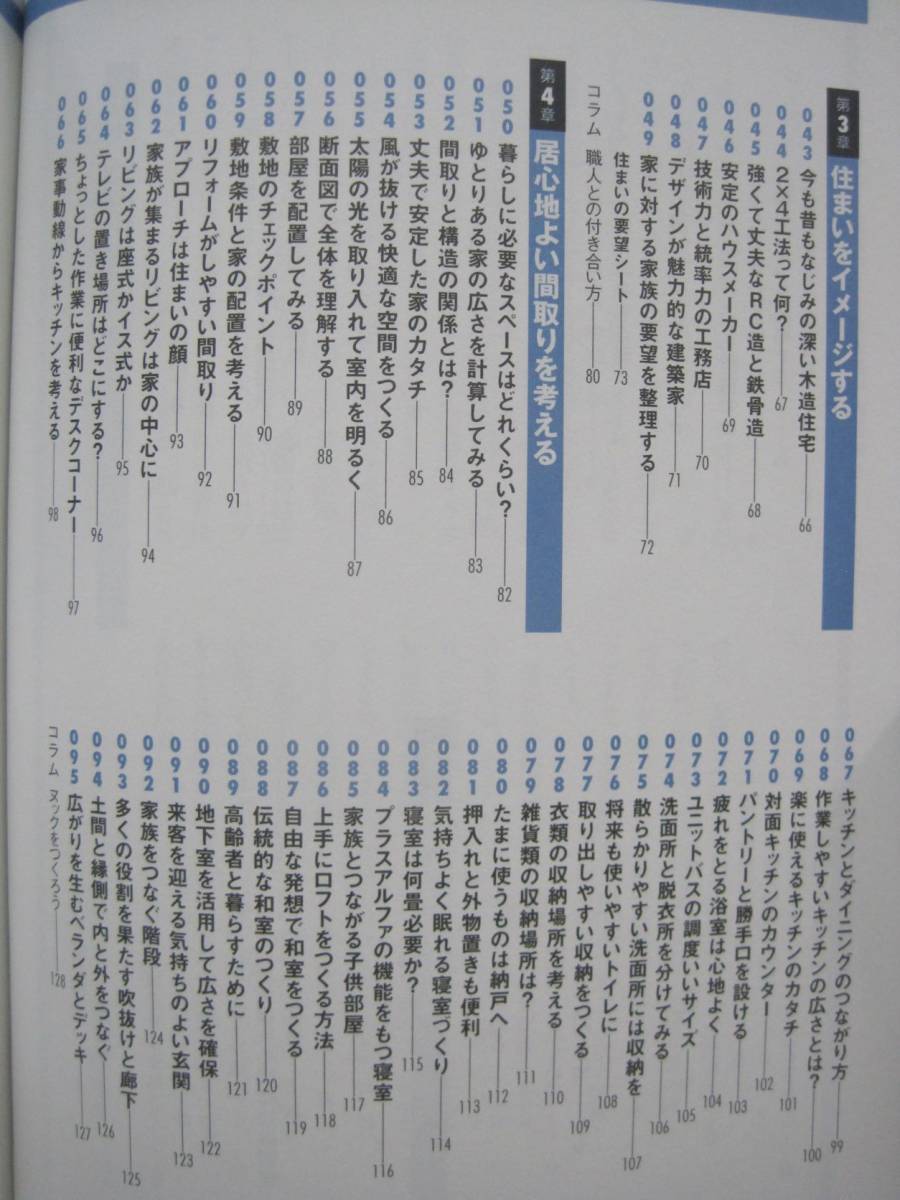 第3章 住まいをイメージする
043 今も昔もなじみの深い木造住宅 66
044 2×4工法って何? 67
045 強くて丈夫なRC造と鉄骨造 68
046 安定のハウスメーカー 69
047 技術力と統率力の工務店 70
048 デザインが魅力的な建築家 71
049 家に対する家族の要望を整理する 72
住まいの要望シート 73
コラム 職人との付き合い方 80
第4章 居心地よい間取りを考える
050 暮らしに必要なスペースはどれくらい? 82
051 ゆとりある家の広さを計算してみる 83
052 間取りと構造の関係とは? 84
053 丈夫で安定した家のカタチ 85
054 風が抜ける快適な空間をつくる 86
055 太陽の光を取り入れて室内を明るく 87
056 断面図で全体を理解する 88
057 部屋を配置してみる 89
058 敷地のチェックポイント 90
059 敷地条件と家の配置を考える 91
060 リフォームがしやすい間取り 92
061 アプローチは住まいの顔 93
062 家族が集まるリビングは家の中心に 94
063 リビングは座式かイス式か 95
064 テレビの置き場所はどこにする? 96
065 ちょっとした作業に便利なデスクコーナー 97
066 家事動線からキッチンを考える 98
067 キッチンとダイニングのつながり方 99
068 作業しやすいキッチンの広さとは? 100
069 楽に使えるキッチンのカタチ 101
070 対面キッチンのカウンター 102
071 パントリーと勝手口を設ける 103
072 疲れをとる浴室は心地よく 104
073 ユニットバスの調度いいサイズ 105
074 洗面所と脱衣所を分けてみる 106
075 散らかりやすい洗面所には収納を 107
076 将来も使いやすいトイレに 108
077 取り出しやすい収納をつくる 109
078 衣類の収納場所を考える 110
079 雑貨類の収納場所は? 111
080 たまに使うものは納戸へ 112
081 押入れと外物置きも便利 113
082 気持ちよく眠れる寝室づくり 114
083 寝室は何畳必要か? 115
084 プラスアルファの機能をもつ寝室 116
085 家族とつながる子供部屋 117
086 上手にロフトをつくる方法 118
087 自由な発想で和室をつくる 119
088 伝統的な和室のつくり 120
089 高齢者と暮らすために 121
090 地下室を活用して広さを確保 122
091 来客を迎える気持ちのよい玄関 123
092 家族をつなぐ階段 124
093 多くの役割を果たす吹抜けと廊下 125
094 土間と縁側で内と外をつなぐ 126
095 広がりを生むベランダとデッキ 127
コラム ヌックをつくろう 128